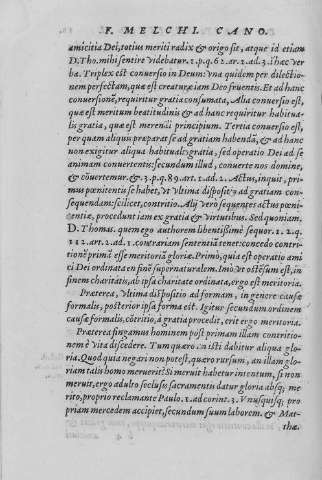 F. MELCHI. CANO.
amicitia Dei, totius meriti radix & origo sit, atque id etiam
D. Tho. mihi sentire videbatur. 1. p. q. 62. ar. 2. ad. 3. ihæc ver
ba. Triplex est conuersio in Deum: Vna quidem per dilectio-
nem perfectam, quæ est creaturæ iam Deo fruentis. Et ad hanc
conuersionē, requiritur gratia consumata, Alia conuersio est,
quæ est meritum beatitudinis & ad hanc requiritur habitua-
lis gratia, quæ est merendi principium. Tertia conuersio est,
per quam aliquis præparat se ad gratiam habendā, & ad hanc
non exigitur aliqua habitualis gratia, sed operatio Dei ad se
animam conuertentis: secundum illud, conuerte nos domine,
& cōuertemur. & .3. p. q. 89. art. 2. ad. 2. Actus, inquit, pri-
mus pœnitentis se habet, vt vltima dispositio ad gratiam con-
sequendam: scilicet, contritio. Alij vero sequentes actus pœni-
tentiæ, procedunt iam ex gratia & virtutibus. Sed quoniam.
D. Thomas. quem ego authorem libentißimè sequor. 1. 2. q.
112. art. 2. ad. 1. contrariam sententiā tenet: concedo contri-
tionē primā esse meritoriā gloriæ. Primò, quia est operatio ami
ci Dei ordinata en finē supernaturalem. Imò vt ostēsum est, in
finem charitatis, ab ipsa charitate ordinata, ergo est meritoria.
Præterea, vltima dispositio ad formam, in genere causæ
formalis, posterior ipsa forma est. Igitur secundum ordinem
causæ formalis, cōtritio, à gratia procedit, erit ergo meritoria.
Præterea fingamus hominem post primam illam contritio-
nem è vita discedere. Tum quæro an isti dabitur aliqua glo-
ria. Quod quia negari non potest, quæro rursum, an illam glo-
riam talis homo meruerit? Si meruit habetur intentum, si non
meruit, ergo adulto seclusis sacramentis datur gloria absq; me
rito, proprio reclamante Paulo. 1. ad corint. 3. Vnusquisq; pro
priam mercedem accipiet, secundum suum laborem. & Mat-
thæ.